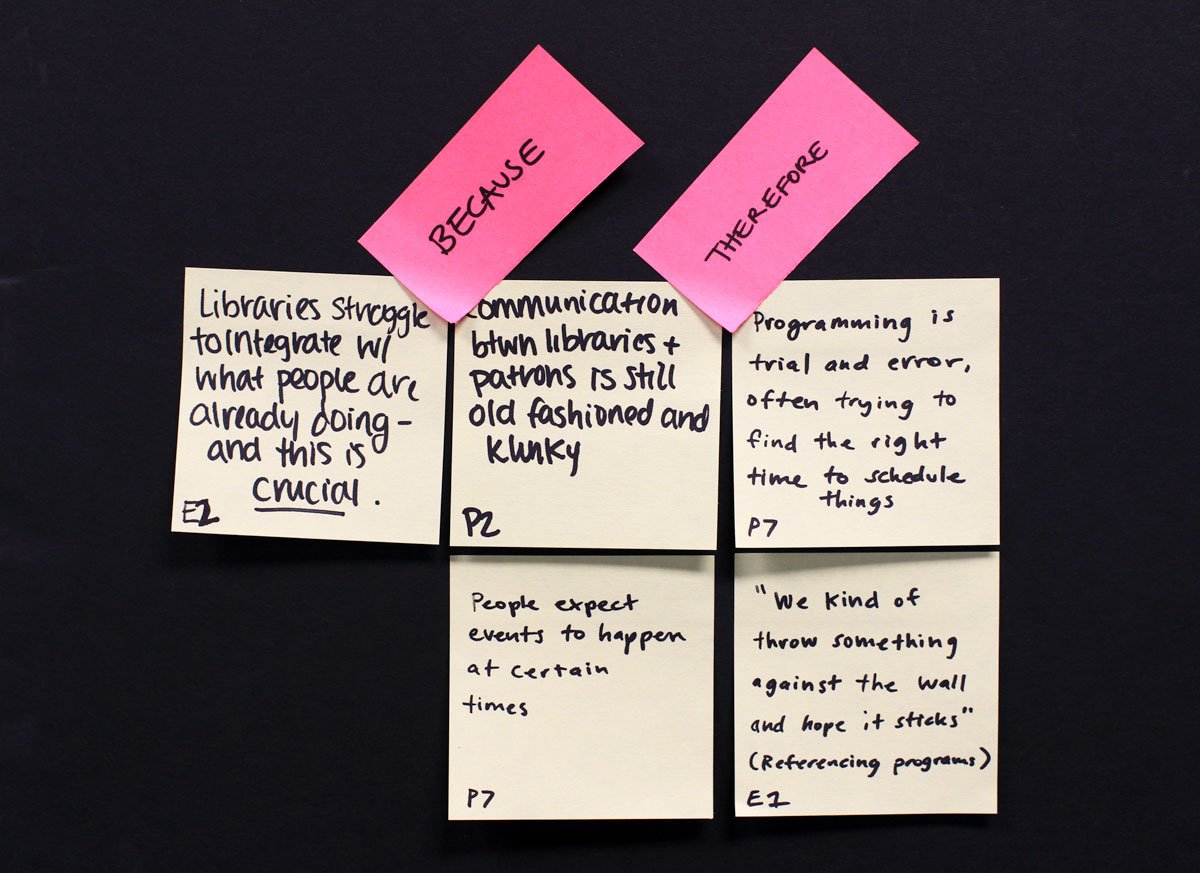 BECAUSE
THEREFORE
Libraries struggle
to integrate w/
what people are
already doing -
and this is
crucial.
E1
communication
btwn libraries +
patrons is still
old fashioned and
klunky
P2
Programming is
trial and error,
often trying to
find the right
time to schedule
things
P7
People expect
events to happen
at certain
times
P7
"We kind of
throw something
against the wall
and hope it sticks"
(Referencing programs)
E1